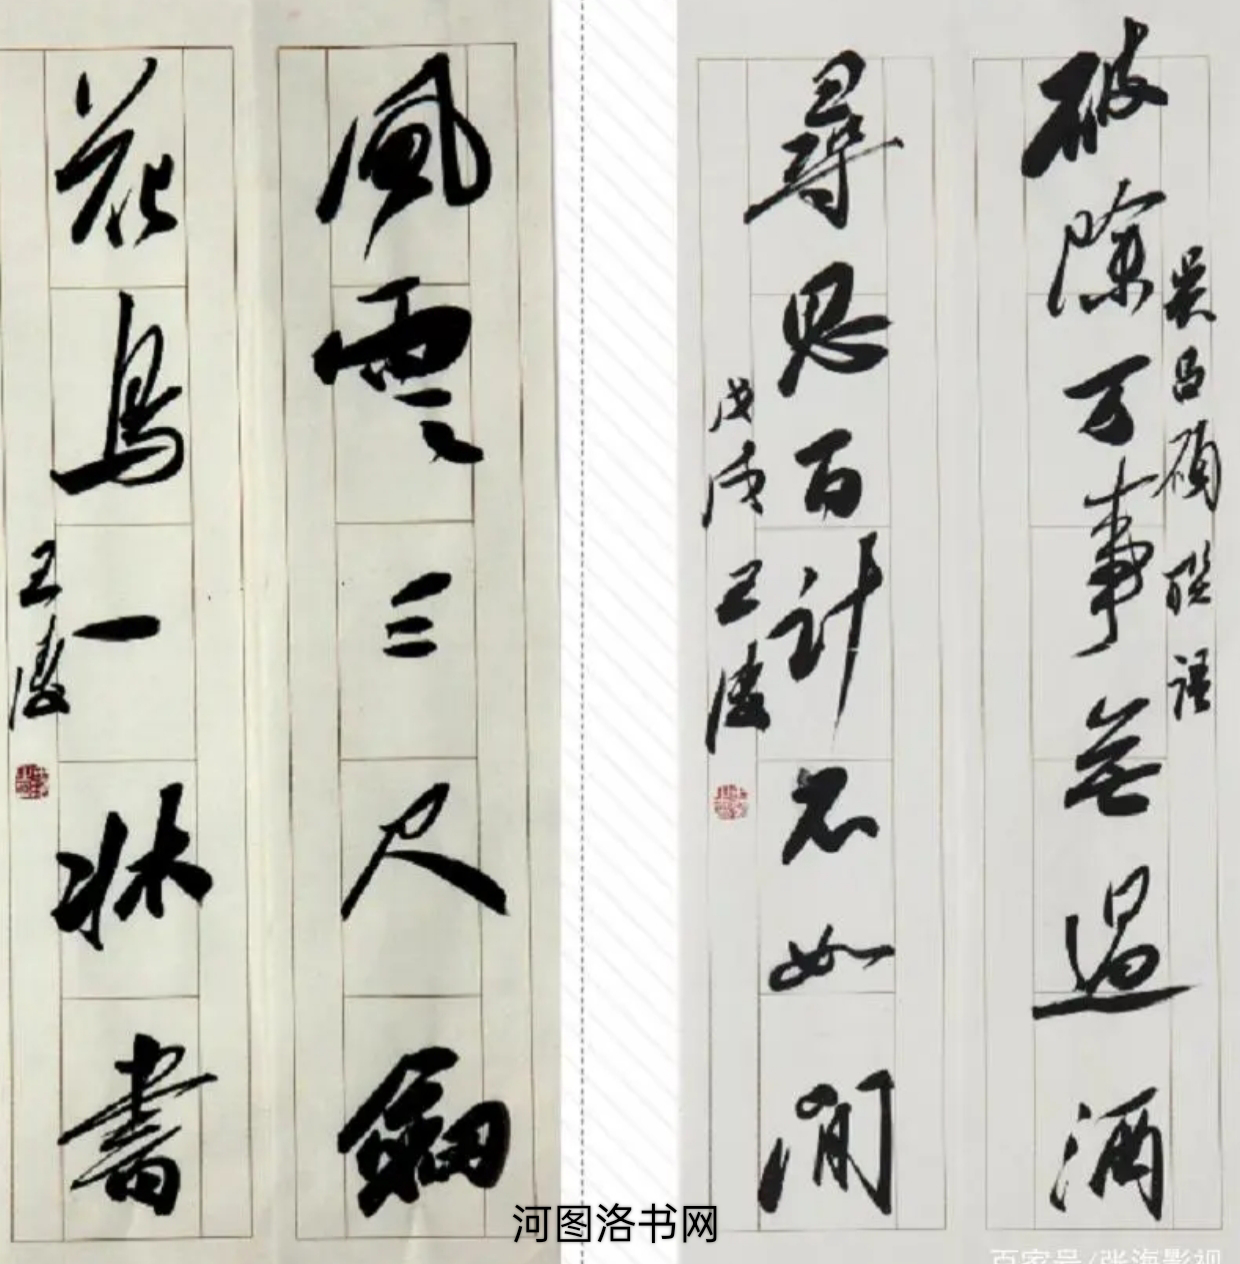 破除万事無過酒
吴昌碩联語
尋思百計不如閒
戊戌王
風雲三尺劍
花鳥一牀書
王
河图洛书网
百家号/张海影视